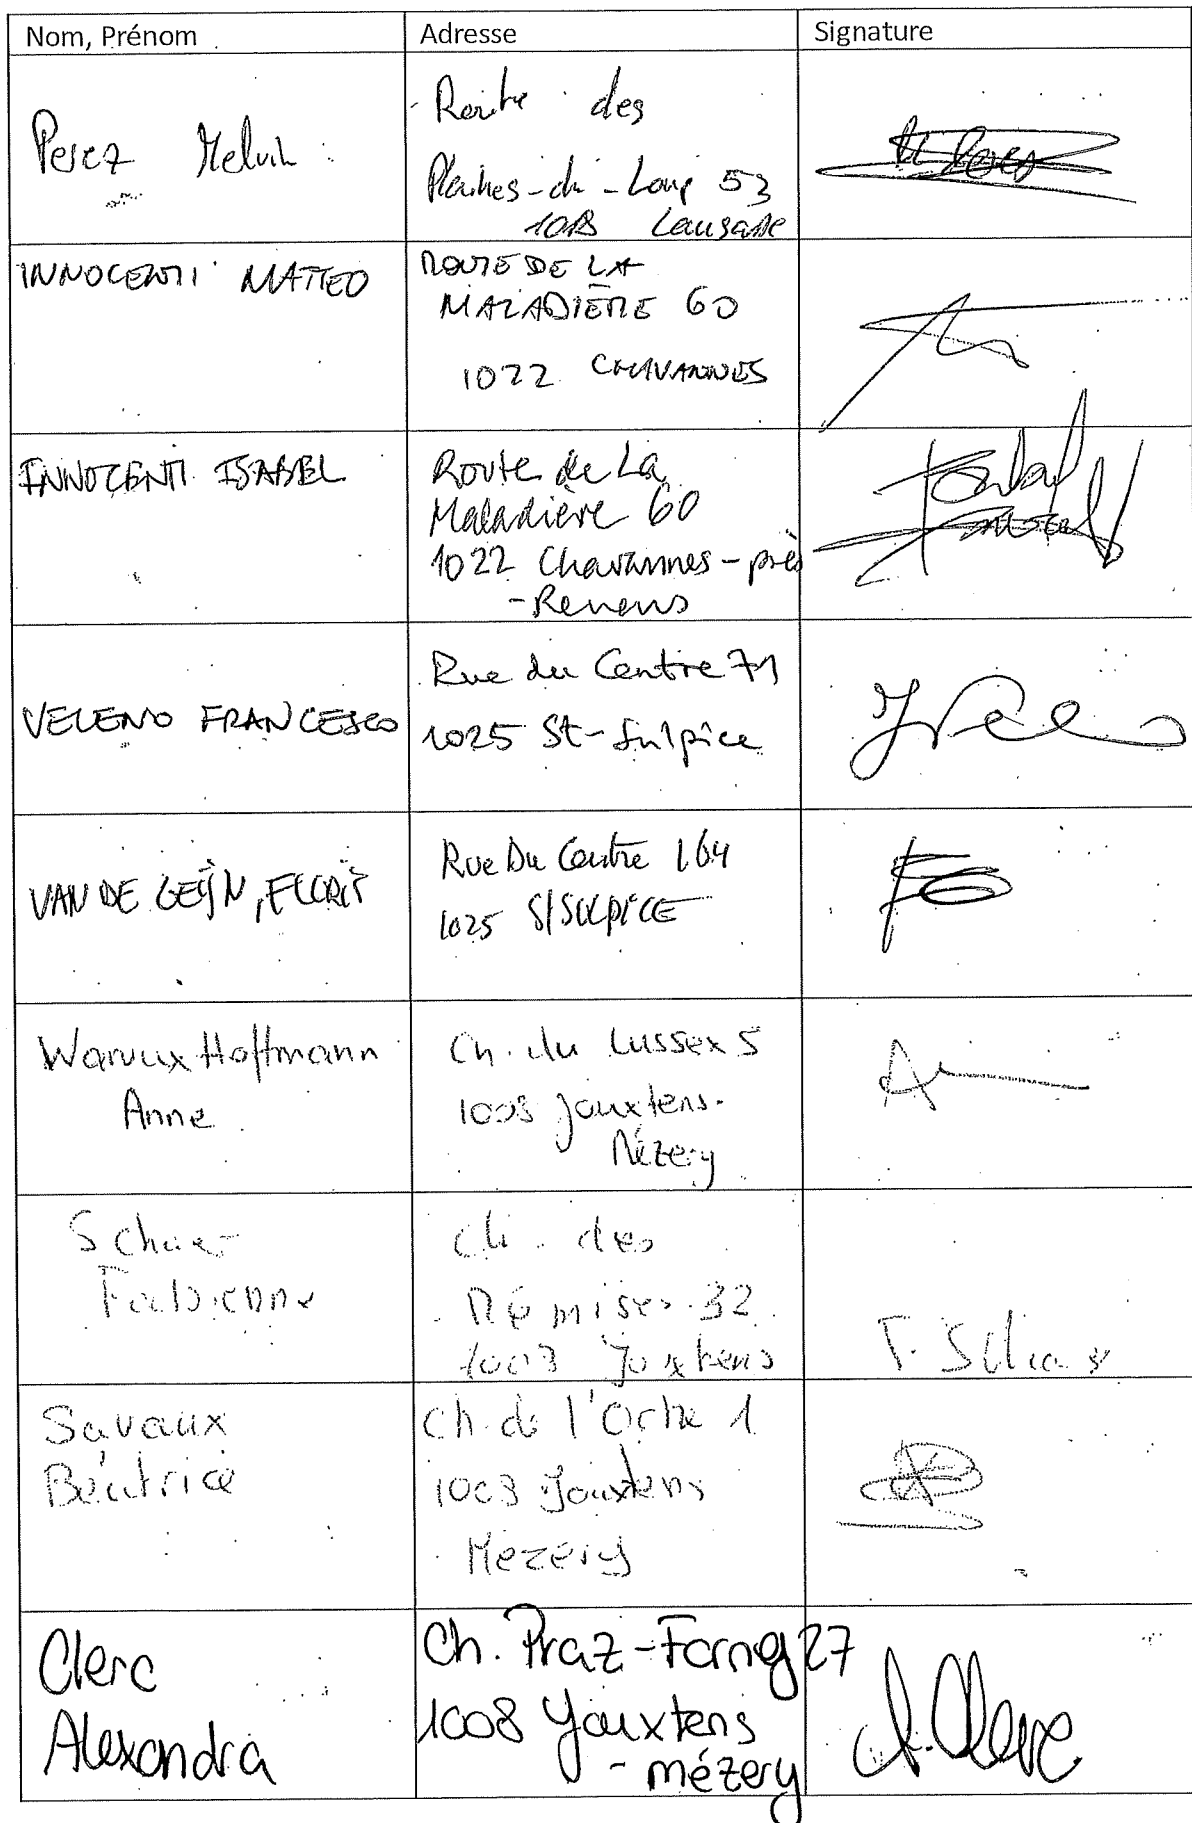 Nom, Prénom Adresse Signature
Perez Melvin
Route des
Plaines-du-Loup 53
1018 Lausanne
INNOCENTI MATTEO
ROUTE DE LA
MALADIÈRE 60
1022 CHAVANNES
INNOCENTI ISABEL
Route de La
Maladière 60
1022 Chavannes-près
-Renens
VELENO FRANCESCO
Rue du Centre 71
1025 St-Sulpice
VAN DE GEIJN, FLORIS
Rue Du Centre 164
1025 S/SULPICE
Hoffmann
Anne
Ch. du Lussex 5
1008 Jouxtens-
Mézery
Fabienne
Ch. des
Rémises 32
1008 Jouxtens
Savaux
Béatrice
Ch. de l'Orche 1
1008 Jouxtens
Mézery
Clerc
Alexandra
Ch. Praz-Forney 27
1008 Jouxtens
-mézery
A. Clerc